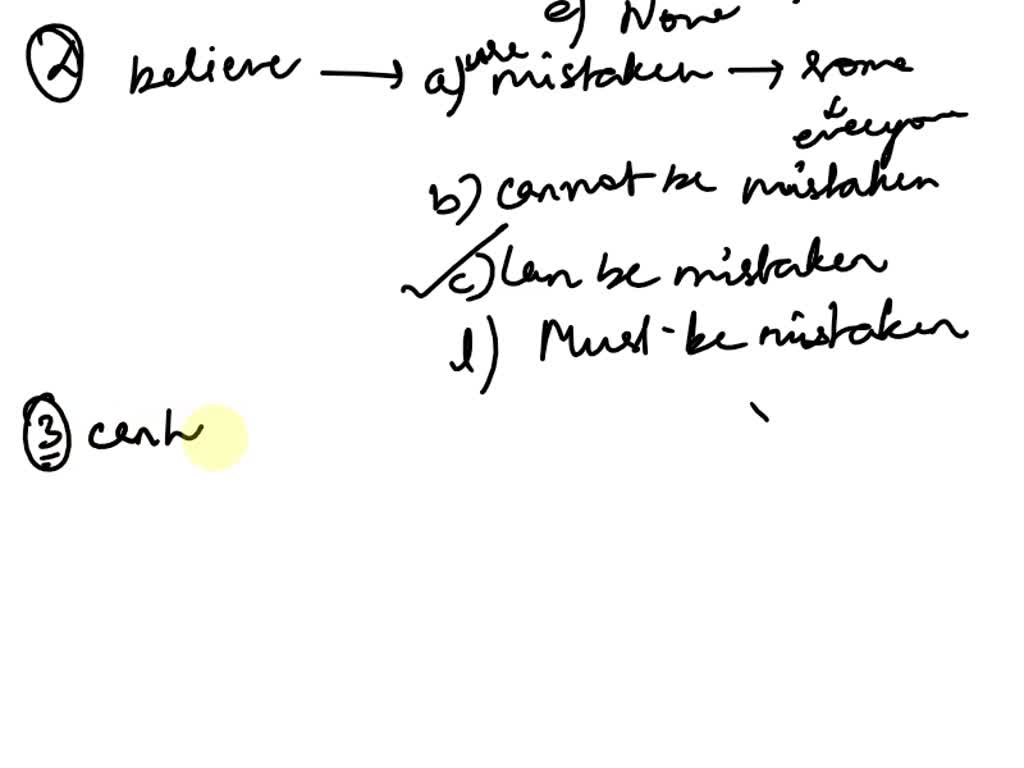 e) None
② believe → a) are mistaken → some
everyone
b) cannot be mistaken
c) Can be mistaken
d) Must be mistaken
③ cent